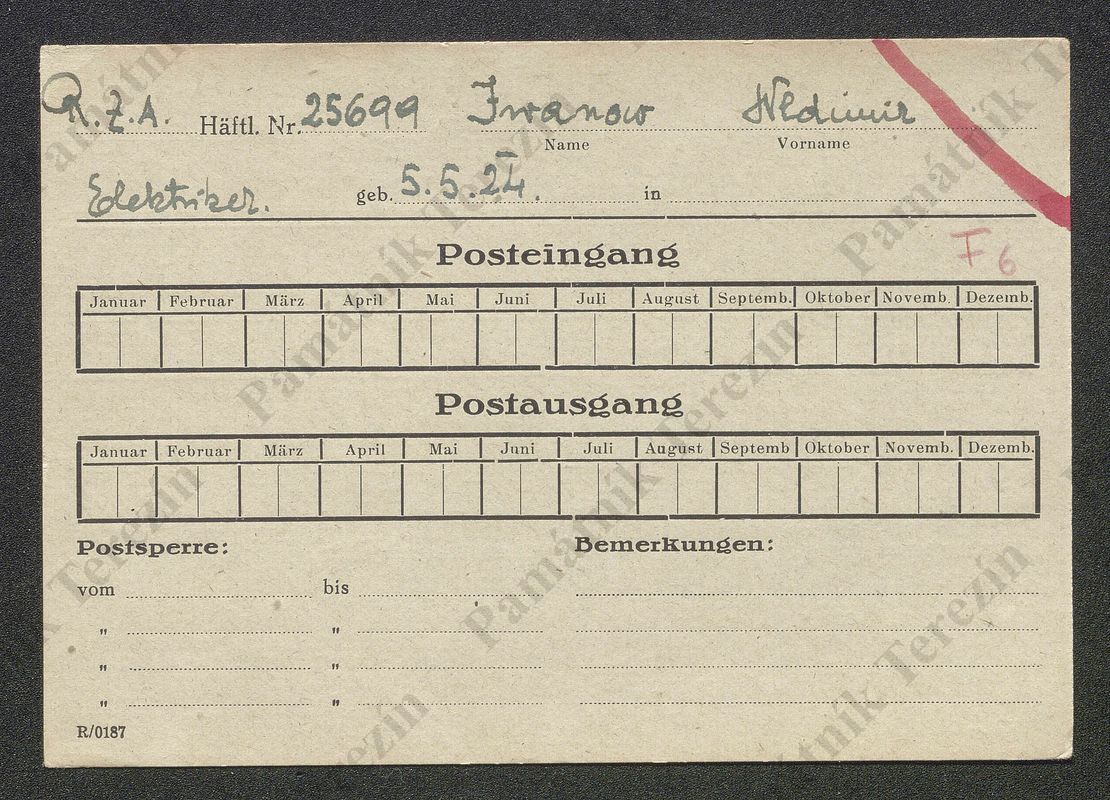 R.Z.A. Häftl. Nr. 25699 Iwanow Wldimir
Name Vorname
Elektriker. geb. 5.5.24. in
Posteingang
F 6
Januar Februar März April Mai Juni Juli August Septemb. Oktober Novemb. Dezemb.
Postausgang
Januar Februar März April Mai Juni Juli August Septemb Oktober Novemb. Dezemb.
Postsperre: Bemerkungen:
vom bis
" "
" "
" "
R/0187
Památník Terezín